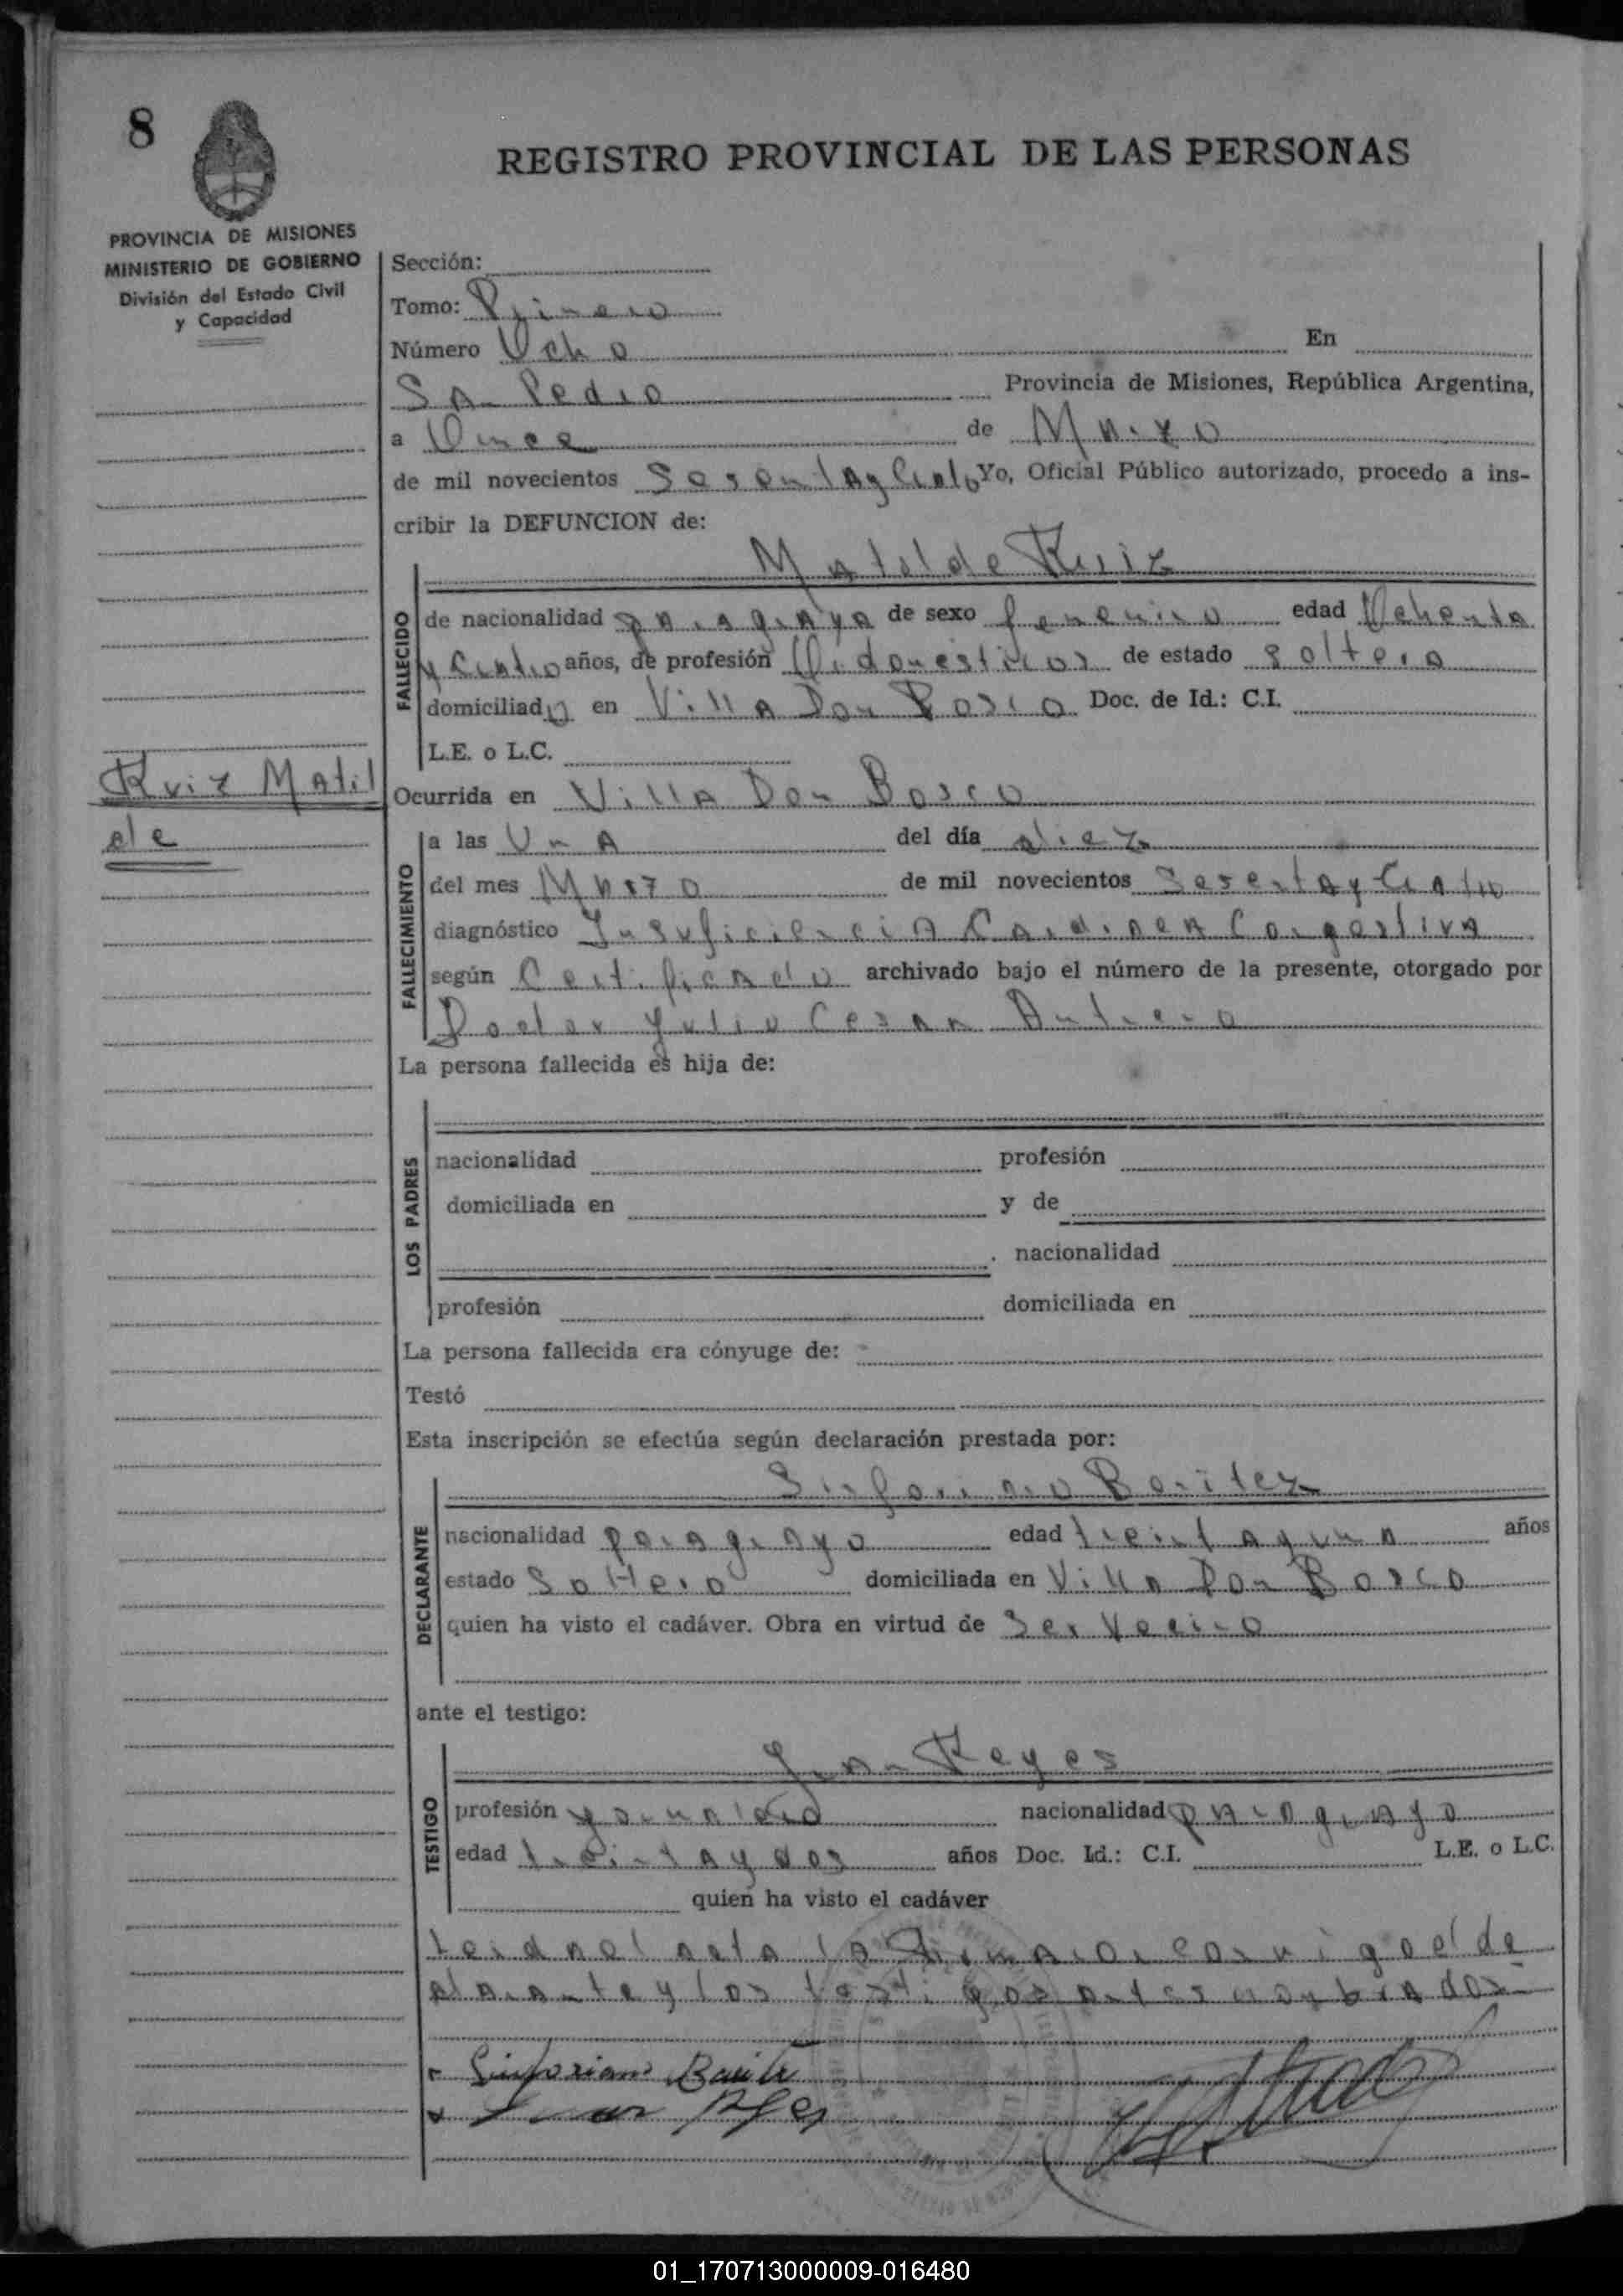 8
REGISTRO PROVINCIAL DE LAS PERSONAS
PROVINCIA DE MISIONES
MINISTERIO DE GOBIERNO
División del Estado Civil
y Capacidad
Sección:
Tomo: Primero
Número Ocho En
San Pedro Provincia de Misiones, República Argentina,
a Once de Marzo
de mil novecientos Sesenta y Cuatro Yo, Oficial Público autorizado, procedo a ins-
cribir la DEFUNCION de:
Matilde Ruiz
FALLECIDO
de nacionalidad paraguaya de sexo femenino edad Ochenta
y Cuatro años, de profesión Q. domesticos de estado soltera
domiciliado en Villa Don Bosco Doc. de Id.: C.I.
L.E. o L.C.
Ruiz Matil
de
Ocurrida en Villa Don Bosco
FALLECIMIENTO
a las Una del día diez
del mes Marzo de mil novecientos Sesenta y Cuatro
diagnóstico Insuficiencia Cardiaca Congestiva
según Certificado archivado bajo el número de la presente, otorgado por
Doctor Julio Cesar
La persona fallecida es hija de:
LOS PADRES
nacionalidad profesión
domiciliada en y de
. nacionalidad
profesión domiciliada en
La persona fallecida era cónyuge de:
Testó
Esta inscripción se efectúa según declaración prestada por:
Sinforiano Benitez
DECLARANTE
nacionalidad paraguayo edad treinta y una años
estado Soltero domiciliada en Villa Don Bosco
quien ha visto el cadáver. Obra en virtud de Ser Vecino
ante el testigo:
Juan Reyes
TESTIGO
profesión nacionalidad paraguayo
edad treinta y dos años Doc. Id.: C.I. L.E. o L.C.
quien ha visto el cadáver
Leida el acta la firmaron conmigo el de
clarante y los testigos antes nombrados
Sinforiano Benitez
Juan Reyes
01_170713000009-016480